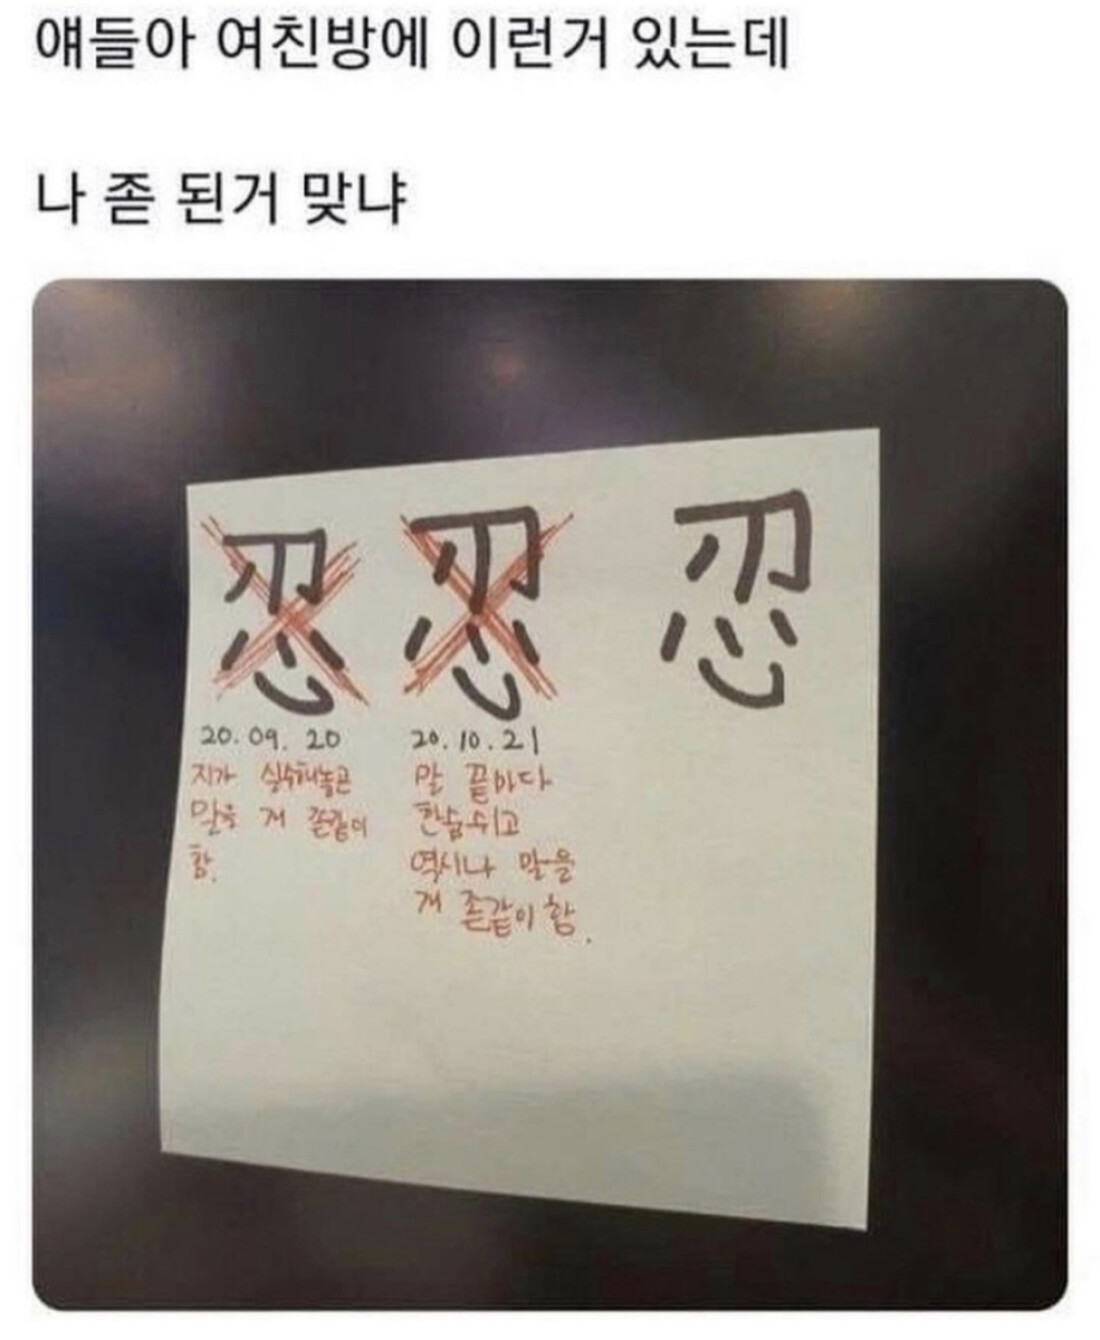 얘들아 여친방에 이런거 있는데
나 좆 된거 맞냐
忍 忍 忍
20.09.20
지가 실수해놓곤
말을 개 좆같이
함.
20.10.21
말 끝마다
한숨쉬고
역시나 말을
개 좆같이 함.